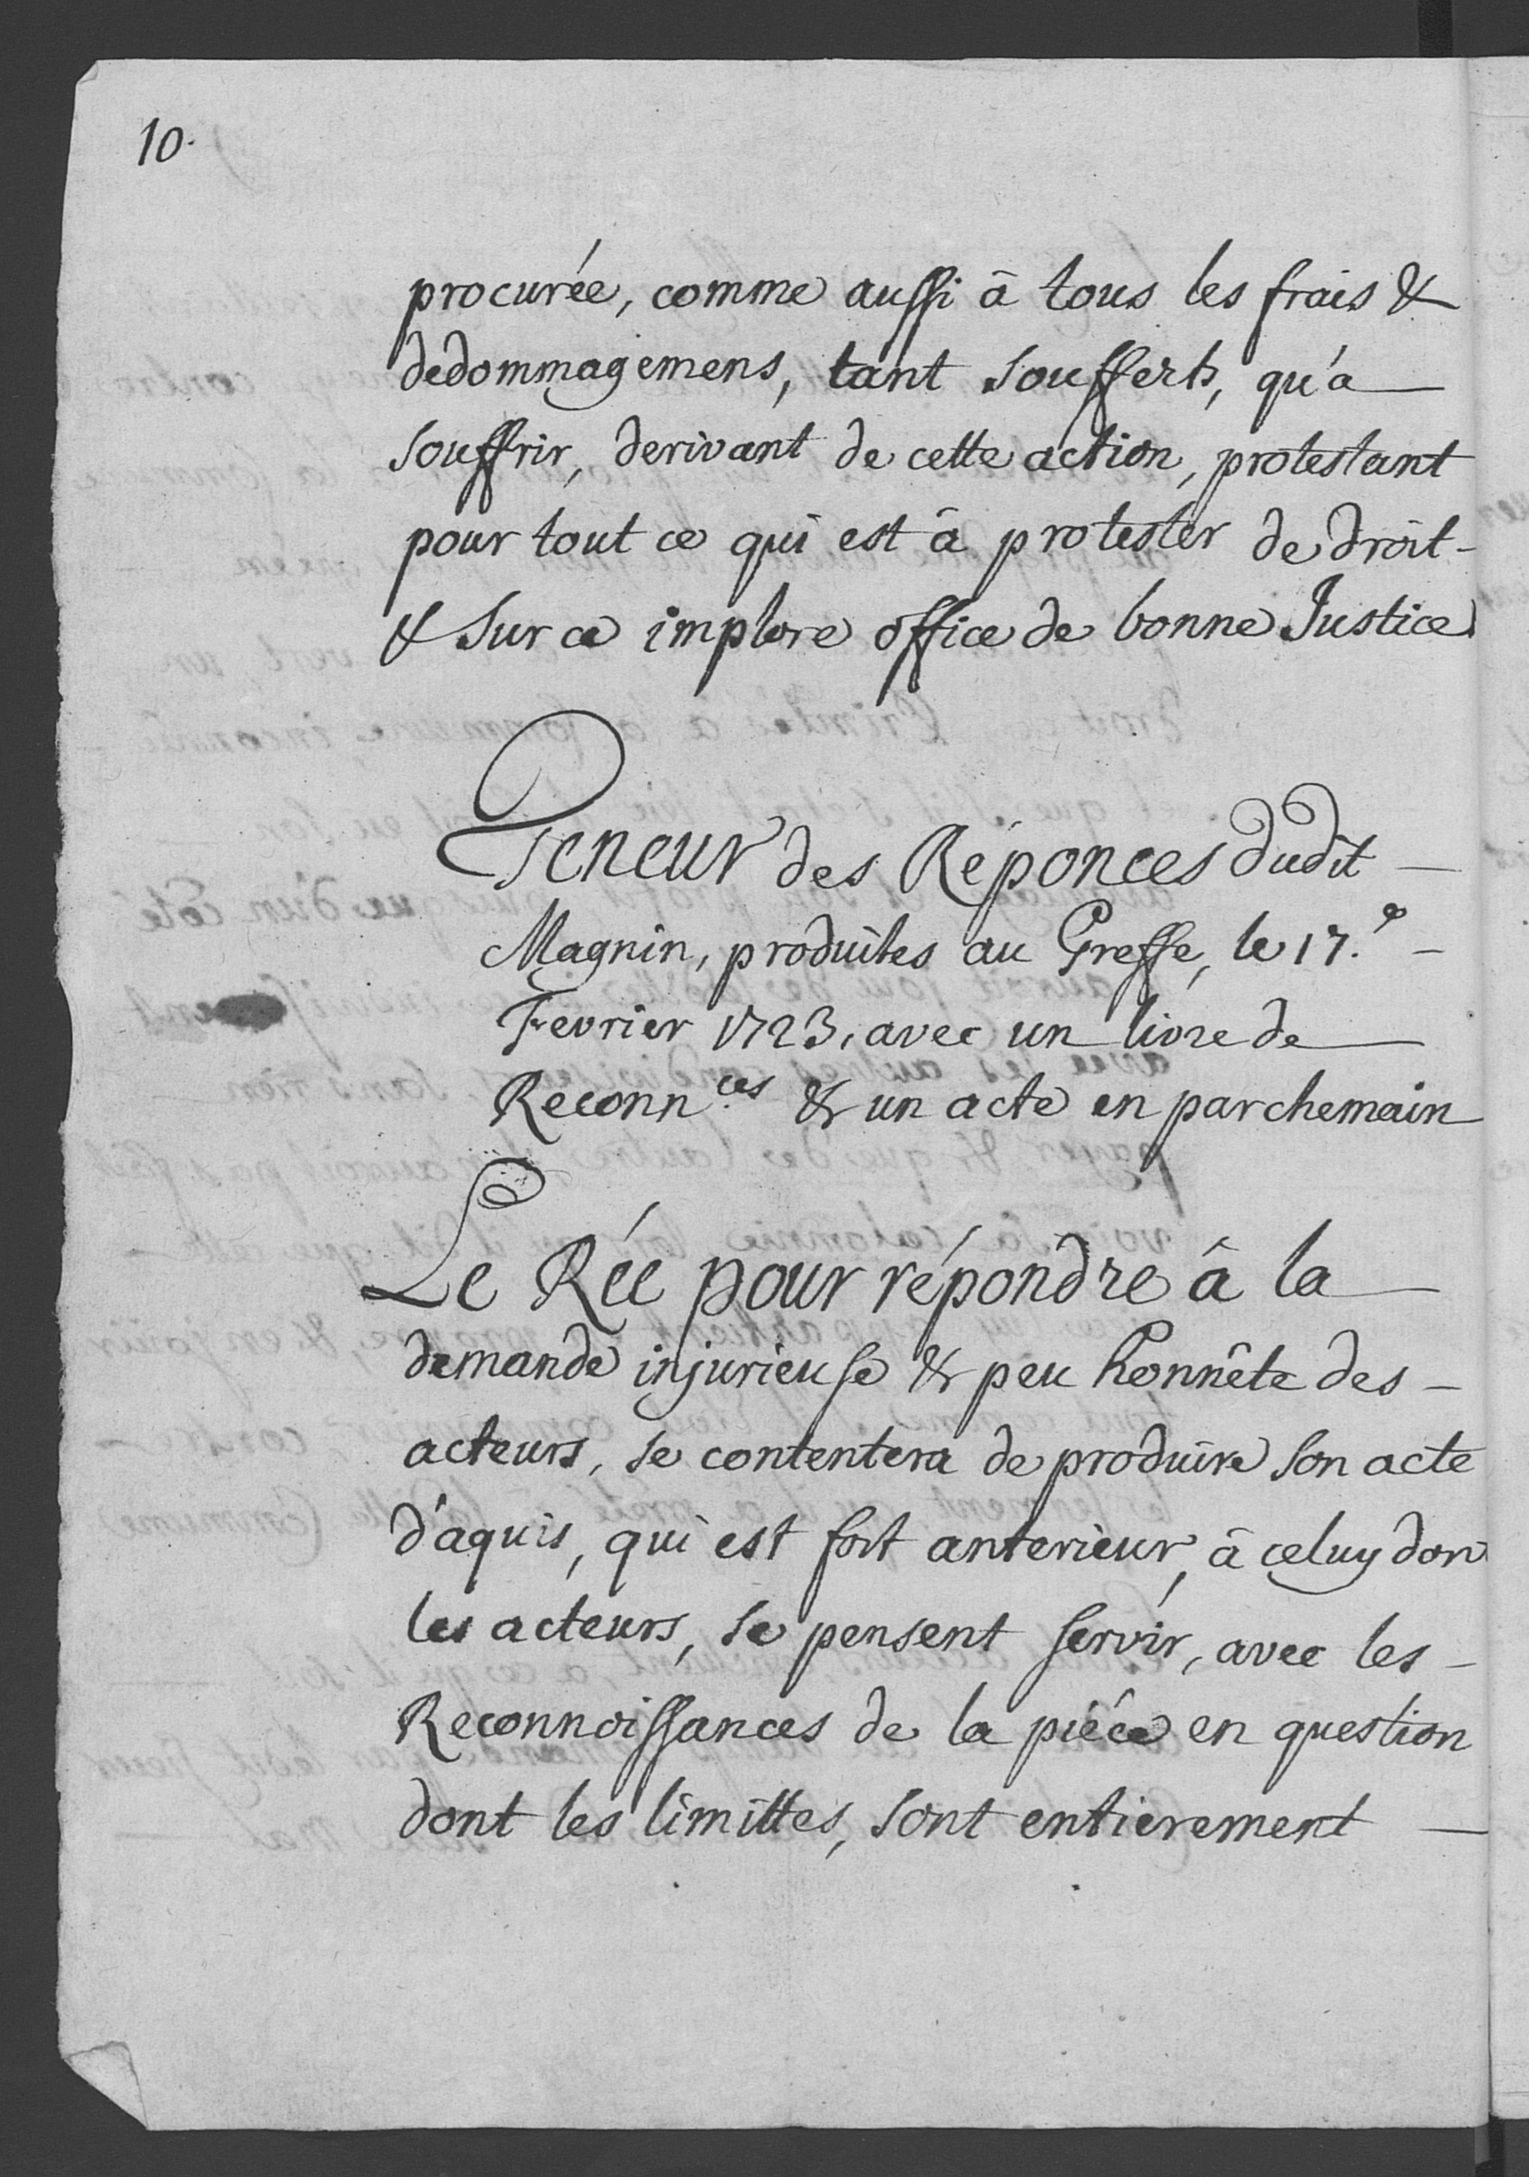 10.
procurée, comme aussi à tous les frais &
dedommagemens, tant soufferts, qu'a
souffrir, derivant de cette action, protestant
pour tout ce qui est à protester de droit
& sur ce implore office de bonne Justice
Teneur des Réponces dudit
Magnin, produites au Greffe, le 17.e
Fevrier 1723, avec un livre de
Reconn.ces & un acte en parchemain
Le Rée pour répondre à la
demande injurieuse & peu honnête des
acteurs, se contentera de produire son acte
d'aquis, qui est fort anterieur, à celuy don
les acteurs, se pensent servir, avec les
Reconnoissances de la piéce en question
dont les limittes, sont entierement